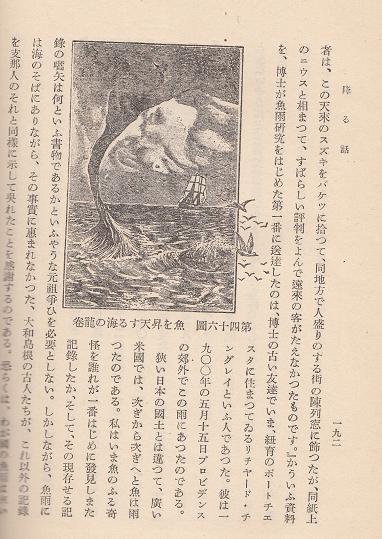 降る話
一九二
者は、この天來のスズキをバケツに拾つて、同地方で人盛りのする街の陳列窓に飾つたが、同紙上
のニウスと相まつて、すばらしい評判をよんで遠來の客がたえなかつたものです。』かういふ資料
を、博士が魚雨硏究をはじめた第一番に送達したのは、博士の古い友達でいま、紐育のポートチエ
スタに住まつてゐるリチヤード・チ
ングレイといふ人であつた。彼は一
九〇〇年の五月十五日プロビデンス
の郊外でこの雨にあつたのである。
狹い日本の國土とは違つて、廣い
米國では、次ぎから次ぎへと魚は雨
つたのである。私はいま魚のふる奇
怪を誰れが一番はじめに發見しまた
記錄したか、そして、その現存せる記
第四十六圖　魚を昇天する海の龍卷
錄の嚆矢は何といふ書物であるかといふやうな元祖爭ひを必要としない。しかしながら、魚雨に
は海のそばにありながら、その事實に惠まれなかつた、大和島根の古人たちが、これ以外の記錄
を支那人のそれと同樣に示して吳れたことを感謝するのである。恐らくは、わが國の魚雨は